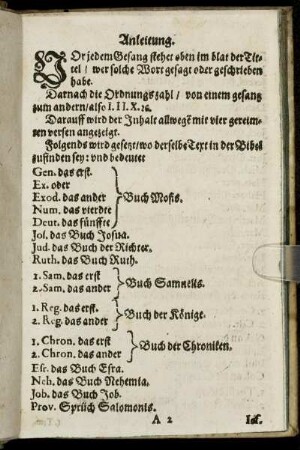 Anleitung.
VOr jedem Gesang stehet oben im blat der Tit-
tel / wer solche Wort gesagt oder geschrieben
habe.
Darnach die Ordnungszahl / von einem gesang
zum andern / also I. II. X. ꝛc.
Darauff wird der Inhalt allwegē mit vier gereim-
ten versen angezeigt.
Folgends wird gesetzt / wo derselbe Text in der Bibel
zufinden sey: vnd bedeutet
Gen. das erst.
Ex. oder
Exod. das ander } Buch Mosis.
Num. das vierdte
Deut. das fünffte
Jos. das Buch Josua.
Jud. das Buch der Richter.
Ruth. das Buch Ruth.
1. Sam. das erst } Buch Samuelis.
2. Sam. das ander
1. Reg. das erst. } Buch der Könige.
2. Reg. das ander
1. Chron. das erst } Buch der Chroniken.
2. Chron. das ander
Esr. das Buch Esra.
Neh. das Buch Nehemia.
Job. das Buch Job.
Prov. Sprüch Salomonis.
A 2 Jes.